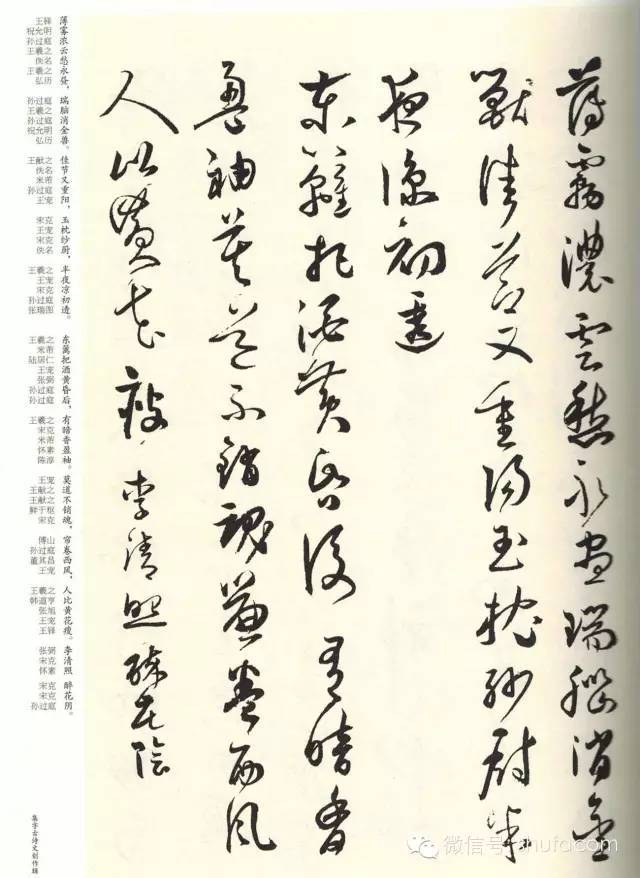 薄霧濃雲愁永晝瑞腦消金
獸佳節又重陽玉枕紗厨半
夜涼初透
東籬把酒黄昏後有暗香
盈袖莫道不銷魂簾卷西風
人比黄花瘦李清照醉花陰
薄雾浓云愁永昼，瑞脑消金兽。佳节又重阳，玉枕纱厨，半夜凉初透。东篱把酒黄昏后，有暗香盈袖。莫道不销魂，帘卷西风，人比黄花瘦。李清照 醉花阴。
王铎
祝允明
孙过庭
王羲之
佚名
王羲之
弘历
孙过庭
王羲之
孙过庭
祝允明
弘历
王献之
佚名
米芾
孙过庭
王宠
宋克
王宠
宋克
佚名
王羲之
王宠
宋克
孙过庭
张瑞图
王羲之
米芾
陆居仁
王宠
张弼
孙过庭
孙过庭
王羲之
宋克
米芾
怀素
陈淳
王宠
王献之
王献之
鲜于枢
宋克
傅山
孙过庭
董其昌
王宠
王羲之
韩道亨
张旭
王宠
王铎
张弼
宋克
怀素
宋克
宋克
孙过庭
集字古诗文创作辑
微信号: